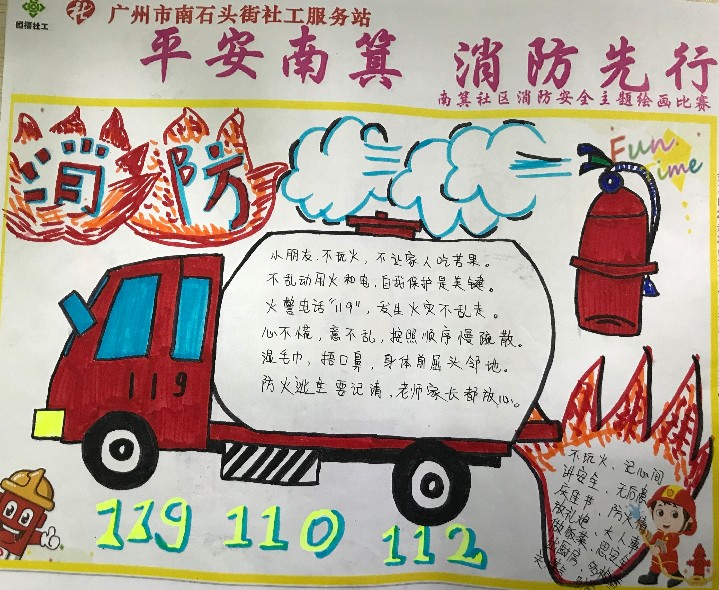 恒福社工
广州市南石头街社工服务站
平安南箕 消防先行
南箕社区消防安全主题绘画比赛
消防
Fun
Time
小朋友,不玩火,不让家人吃苦果。
不乱动用火和电,自我保护是关键。
火警电话“119”,发生火灾不乱走。
心不慌,意不乱,按照顺序慢疏散。
湿毛巾,捂口鼻,身体自屈头邻地。
防火逃生要记清,老师家长都放心。
119
119 110 112
不玩火、记心间
讲安全、无后患
庆佳节、防火
放礼炮、大人
做饭菜、思安